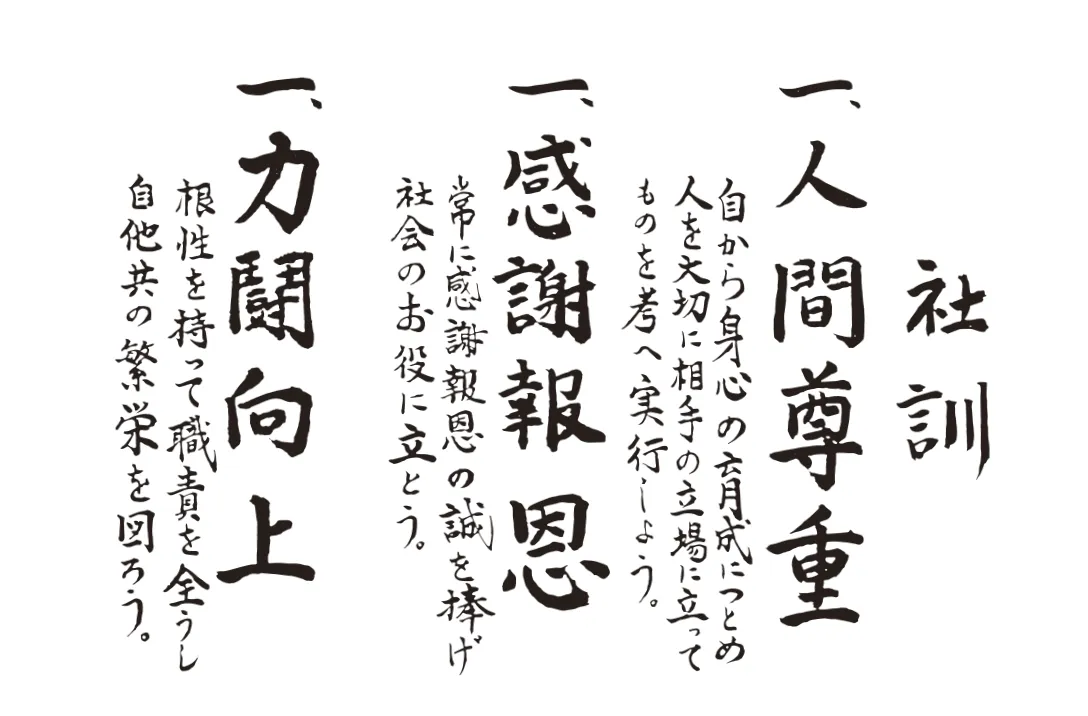 社訓
一、人間尊重
自から身心の育成につとめ
人を大切に相手の立場に立って
ものを考へ実行しよう。
一、感謝報恩
常に感謝報恩の誠を捧げ
社会のお役に立とう。
一、力闘向上
根性を持って職責を全うし
自他共の繁栄を図ろう。